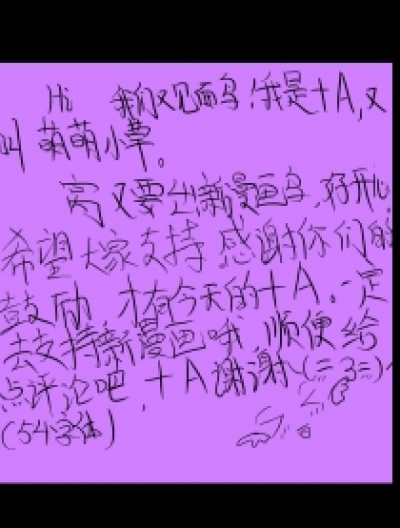 Hi 我们又见面啦！我是十A，又
叫萌萌小草。
又要出新漫画啦，好开心
希望大家支持，感谢你们的
鼓励，才有今天的十A。一定
去支持新漫画哦，顺便给
点评论吧，十A谢谢（=3=）~
（54字体）